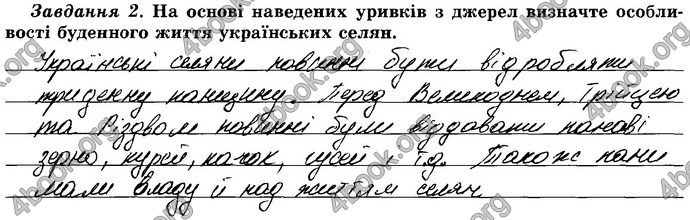 Завдання 2. На основі наведених уривків з джерел визначте особли-
вості буденного життя українських селян.
Українські селяни повинні були відробляти
триденну панщину. Перед Великоднем, Трійцею
та Різдвом повинні були віддавати панові
зерно, курей, качок, гусей і т.д. Також пани
мали владу й над життям селян.